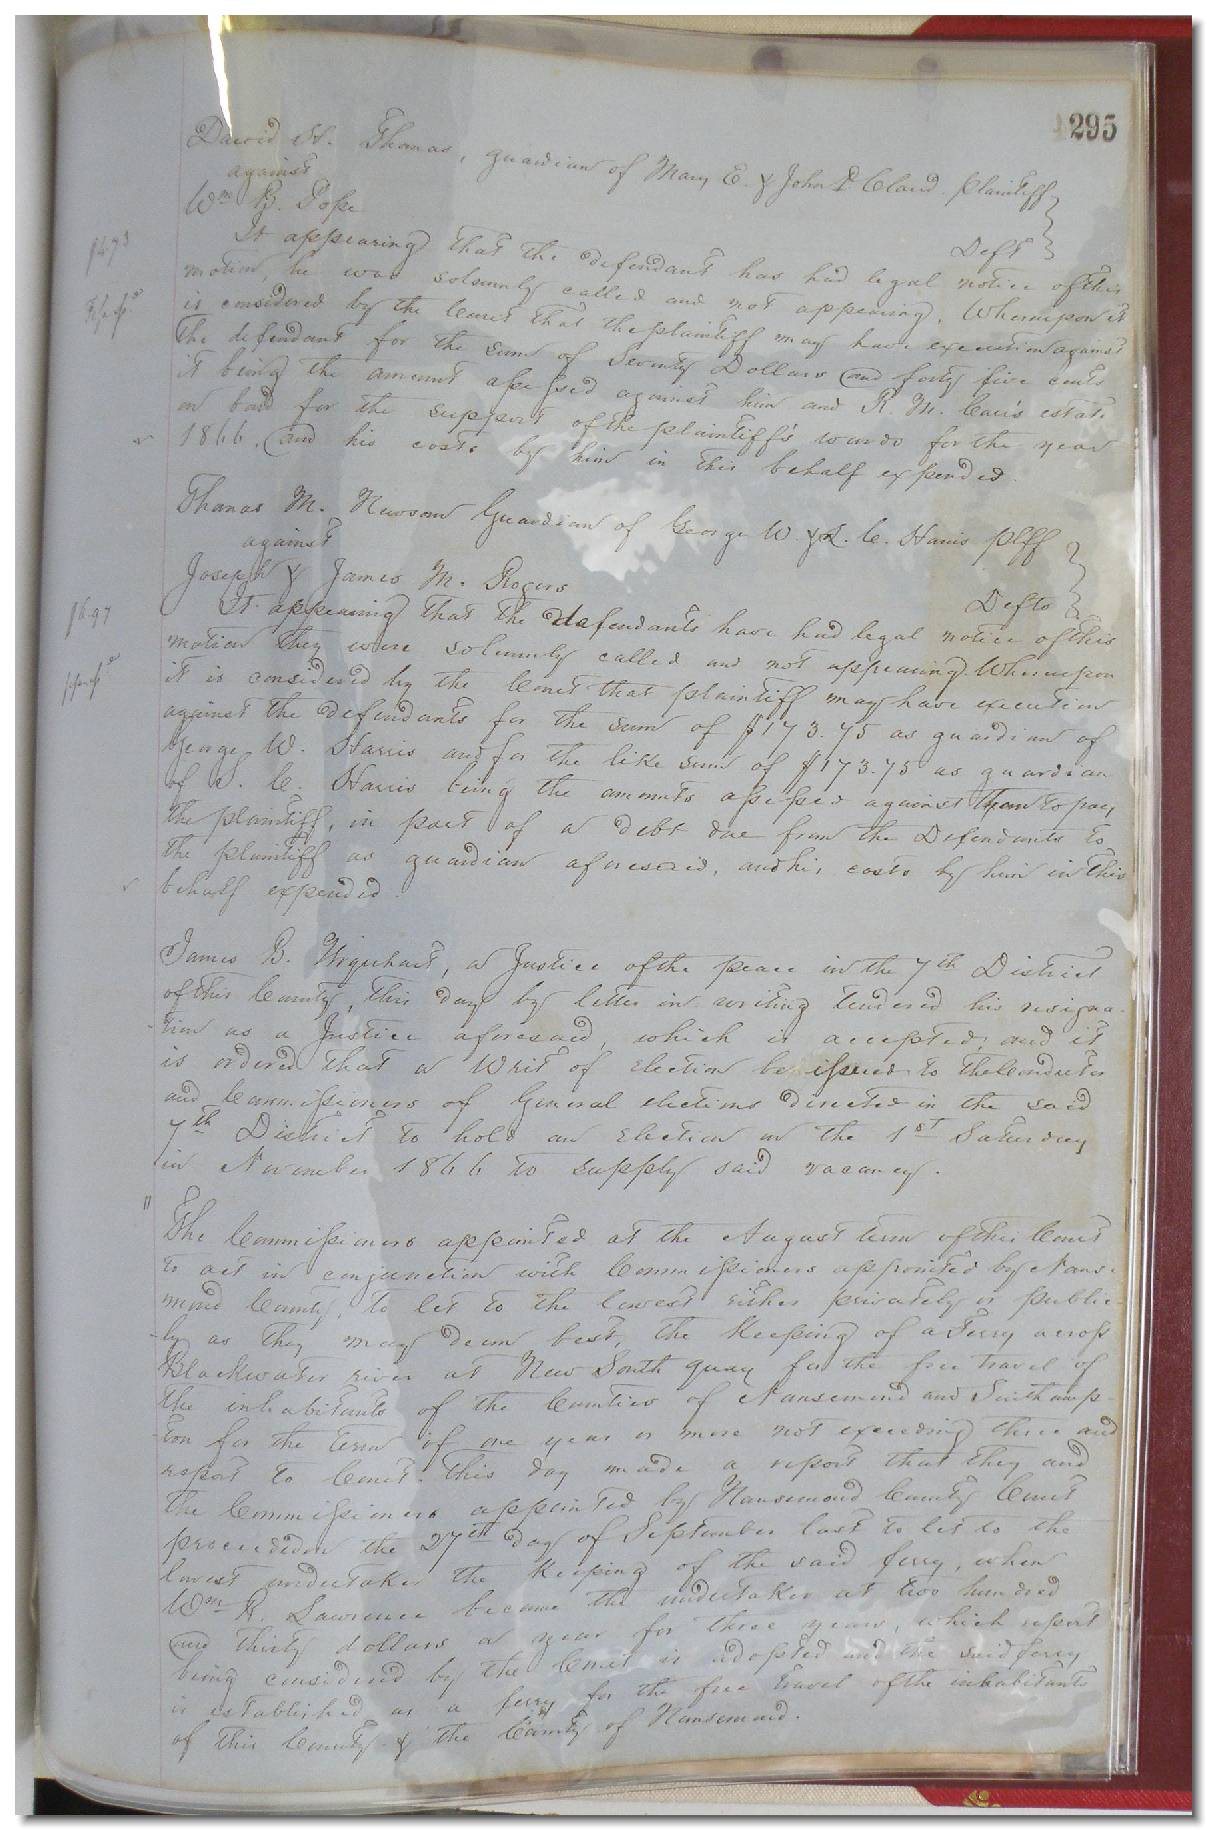 295
David H. Thomas, guardian of Mary E. & John P. Claud. Plaintiff
against
Wm B. Pope Deft
It appearing that the defendant has had legal notice of this
motion, he was solemnly called and not appearing. Whereupon it
is considered by the Court that the plaintiff may have execution against
the defendant for the sum of Seventy Dollars and forty five cents
it being the amount assessed against him and R. M. estate
on bond for the support of the plaintiff's wards for the year
1866, and his costs by him in this behalf expended.
Thomas M. Newsom Guardian of George W & S. C. Harris plff
against
Joseph & James M. Rogers Defts
It appearing that the defendants have had legal notice of this
motion they were solemnly called and not appearing. Whereupon
it is considered by the Court that plaintiff may have execution
against the defendants for the sum of $173.75 as guardian of
George W. Harris and for the like sum of $173.75 as guardian
of S. C. Harris being the amounts assessed against them to pay
the plaintiff, in part of a debt due from the Defendants to
the plaintiff as guardian aforesaid, and his costs by him in this
behalf expended.
James B. Urquhart, a Justice of the peace in the 7th District
of this County, this day by letter in writing tendered his resigna-
tion as a Justice aforesaid, which is accepted; and it
is ordered that a Writ of election be issued to the Conductor
and Commissioners of General elections directed in the said
7th District to hold an election on the 1st Saturday
in November 1866 to supply said vacancy.
The Commissioners appointed at the August term of this Court
to act in conjunction with Commissioners appointed by Nanse-
mond County, to let to the lowest either privately or public-
ly as they may deem best, the keeping of a Ferry across
Blackwater river at New South quay for the free travel of
the inhabitants of the Counties of Nansemond and Southamp-
ton for the term of one year or more not exceeding three and
report to Court. This day made a report that they and
the Commissioners appointed by Nansemond County Court
proceeded on the 27th day of September last to let to the
lowest undertaker the keeping of the said ferry, when
Wm R. Lawrence became the undertaker at two hundred
and thirty dollars a year for three years, which report
being considered by the Court is adopted and the said ferry
is established as a ferry for the free travel of the inhabitants
of this County & the County of Nansemond.